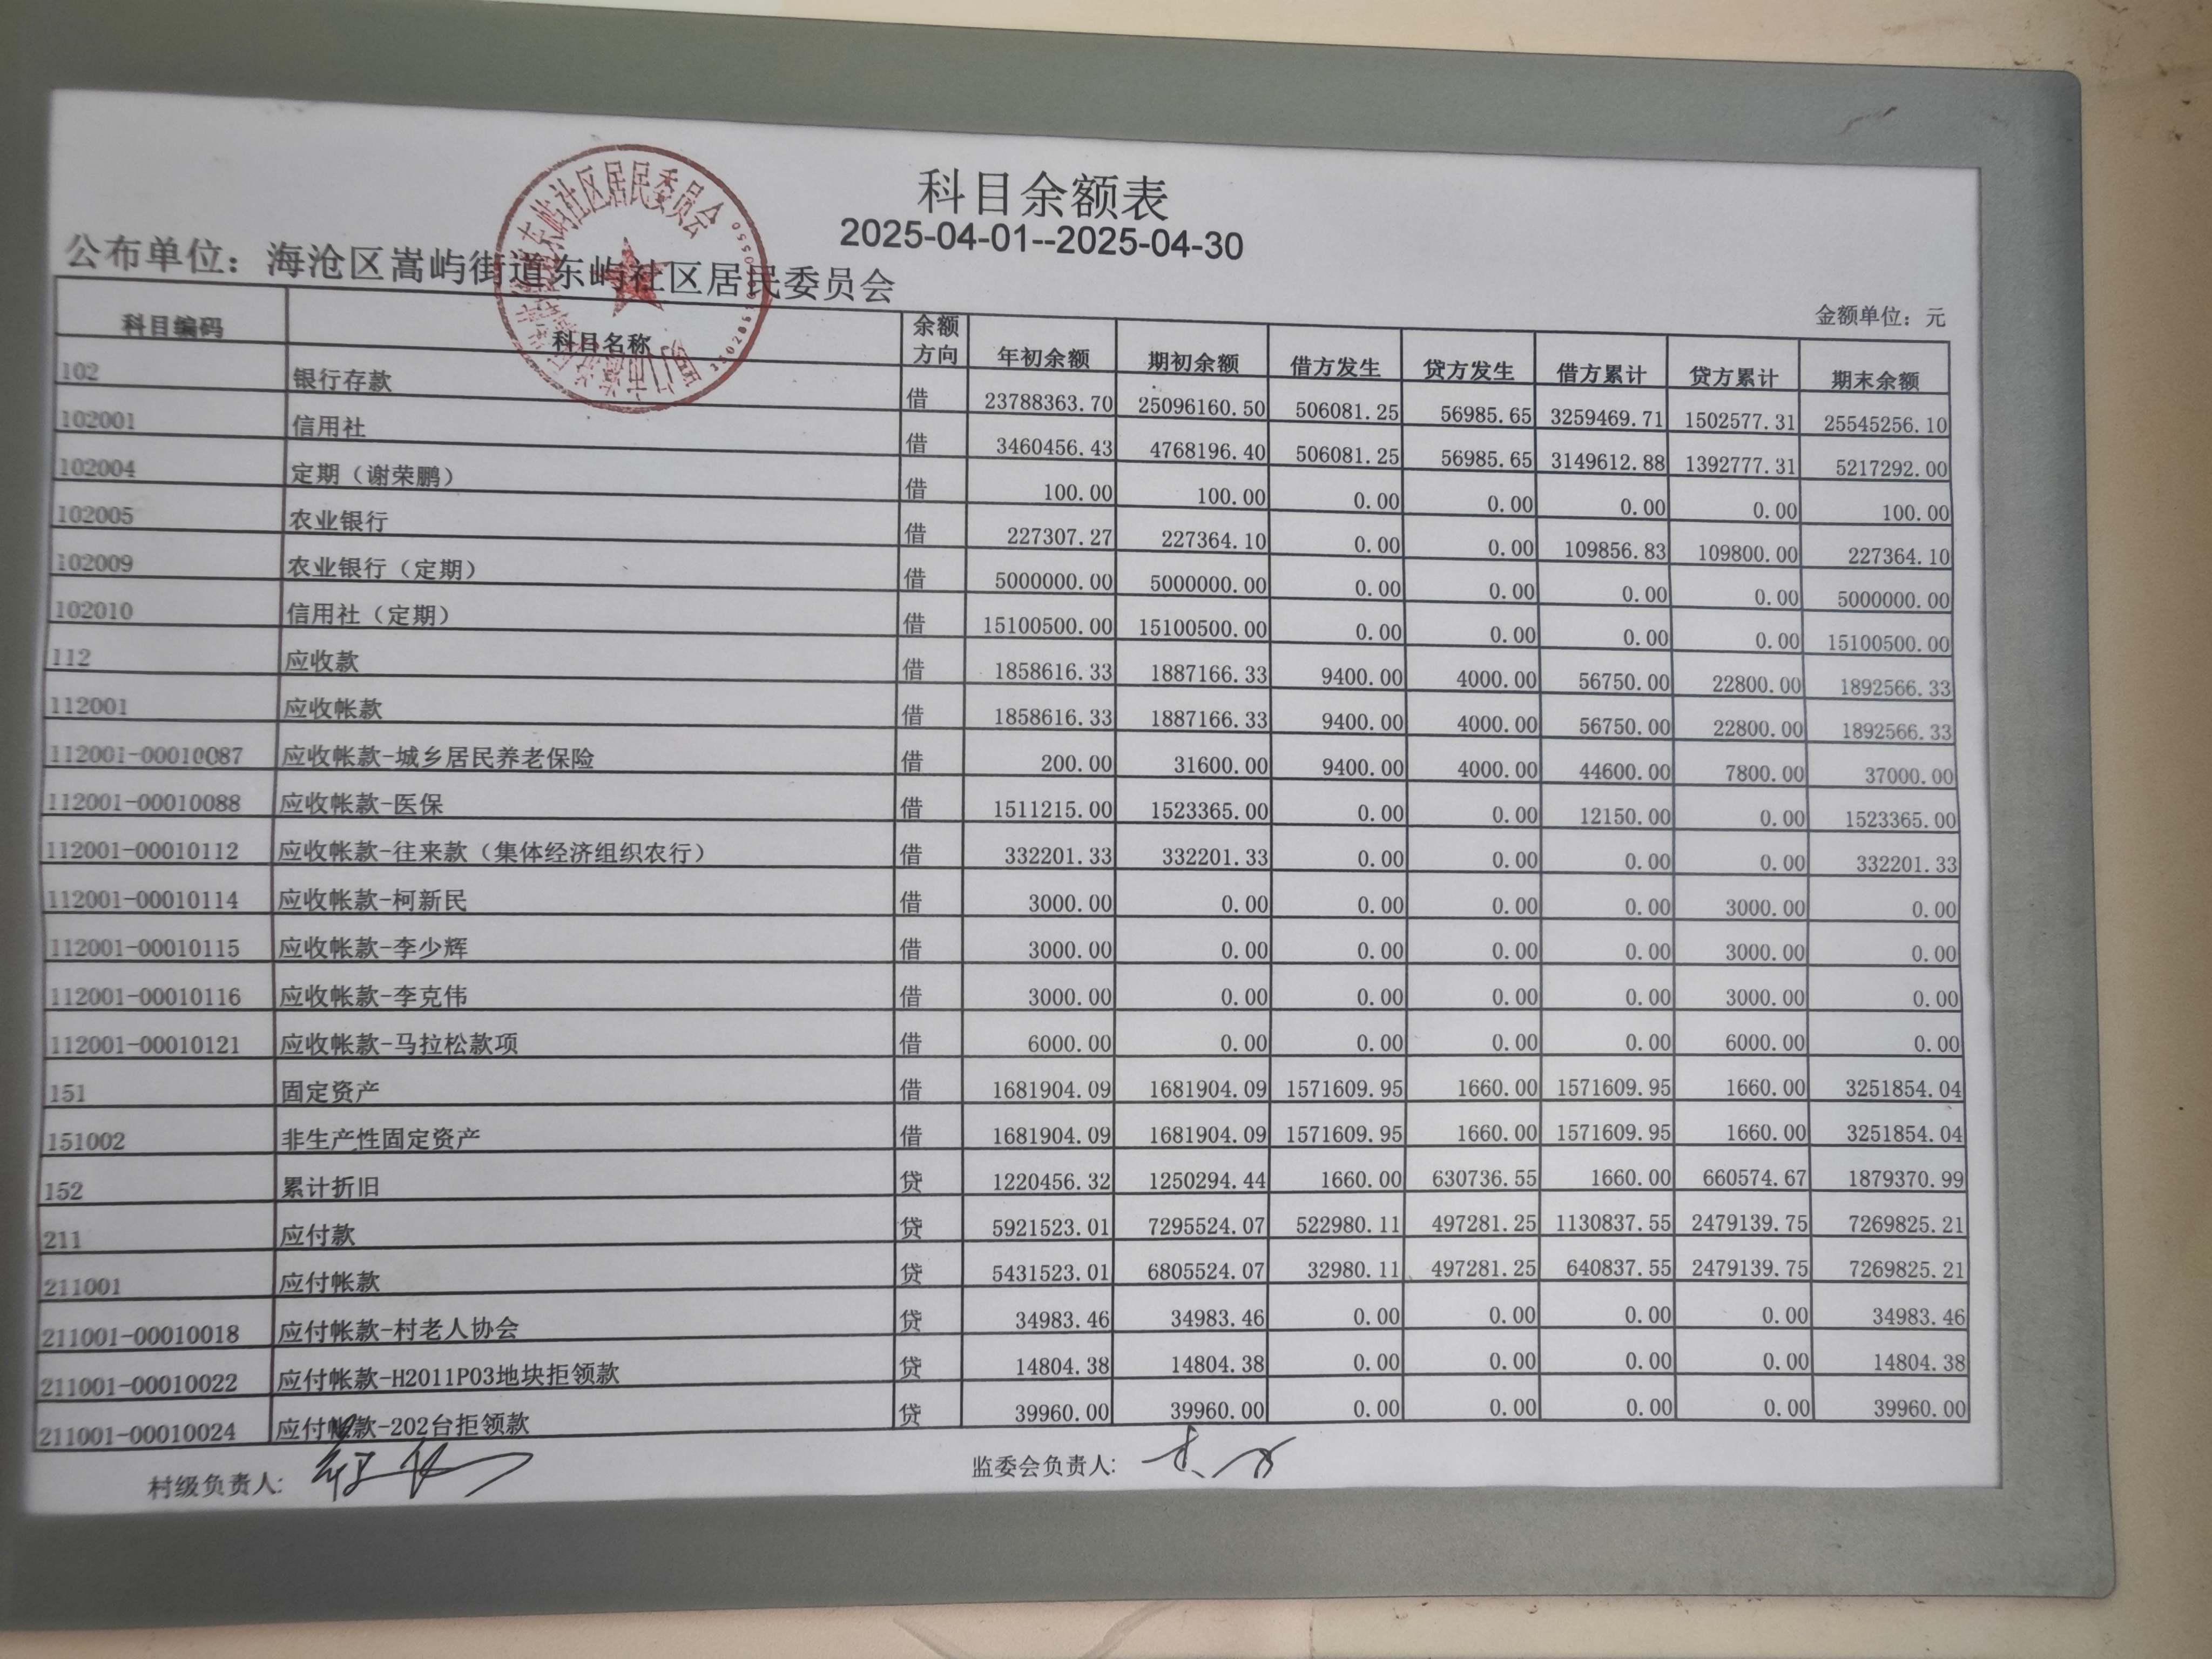 科目余额表
2025-04-01--2025-04-30
公布单位：海沧区嵩屿街道东屿社区居民委员会
金额单位：元
科目编码 科目名称 余额方向 年初余额 期初余额 借方发生 贷方发生 借方累计 贷方累计 期末余额
102 银行存款 借 23788363.70 25096160.50 506081.25 56985.65 3259469.71 1502577.31 25545256.10
102001 信用社 借 3460456.43 4768196.40 506081.25 56985.65 3149612.88 1392777.31 5217292.00
102004 定期（谢荣鹏） 借 100.00 100.00 0.00 0.00 0.00 0.00 100.00
102005 农业银行 借 227307.27 227364.10 0.00 0.00 109856.83 109800.00 227364.10
102009 农业银行（定期） 借 5000000.00 5000000.00 0.00 0.00 0.00 0.00 5000000.00
102010 信用社（定期） 借 15100500.00 15100500.00 0.00 0.00 0.00 0.00 15100500.00
112 应收款 借 1858616.33 1887166.33 9400.00 4000.00 56750.00 22800.00 1892566.33
112001 应收帐款 借 1858616.33 1887166.33 9400.00 4000.00 56750.00 22800.00 1892566.33
112001-00010087 应收帐款-城乡居民养老保险 借 200.00 31600.00 9400.00 4000.00 44600.00 7800.00 37000.00
112001-00010088 应收帐款-医保 借 1511215.00 1523365.00 0.00 0.00 12150.00 0.00 1523365.00
112001-00010112 应收帐款-往来款（集体经济组织农行） 借 332201.33 332201.33 0.00 0.00 0.00 0.00 332201.33
112001-00010114 应收帐款-柯新民 借 3000.00 0.00 0.00 0.00 0.00 3000.00 0.00
112001-00010115 应收帐款-李少辉 借 3000.00 0.00 0.00 0.00 0.00 3000.00 0.00
112001-00010116 应收帐款-李克伟 借 3000.00 0.00 0.00 0.00 0.00 3000.00 0.00
112001-00010121 应收帐款-马拉松款项 借 6000.00 0.00 0.00 0.00 0.00 6000.00 0.00
151 固定资产 借 1681904.09 1681904.09 1571609.95 1660.00 1571609.95 1660.00 3251854.04
151002 非生产性固定资产 借 1681904.09 1681904.09 1571609.95 1660.00 1571609.95 1660.00 3251854.04
152 累计折旧 贷 1220456.32 1250294.44 1660.00 630736.55 1660.00 660574.67 1879370.99
211 应付款 贷 5921523.01 7295524.07 522980.11 497281.25 1130837.55 2479139.75 7269825.21
211001 应付帐款 贷 5431523.01 6805524.07 32980.11 497281.25 640837.55 2479139.75 7269825.21
211001-00010018 应付帐款-村老人协会 贷 34983.46 34983.46 0.00 0.00 0.00 0.00 34983.46
211001-00010022 应付帐款-H2011P03地块拒领款 贷 14804.38 14804.38 0.00 0.00 0.00 0.00 14804.38
211001-00010024 应付帐款-202台拒领款 贷 39960.00 39960.00 0.00 0.00 0.00 0.00 39960.00
村级负责人: 监委会负责人: